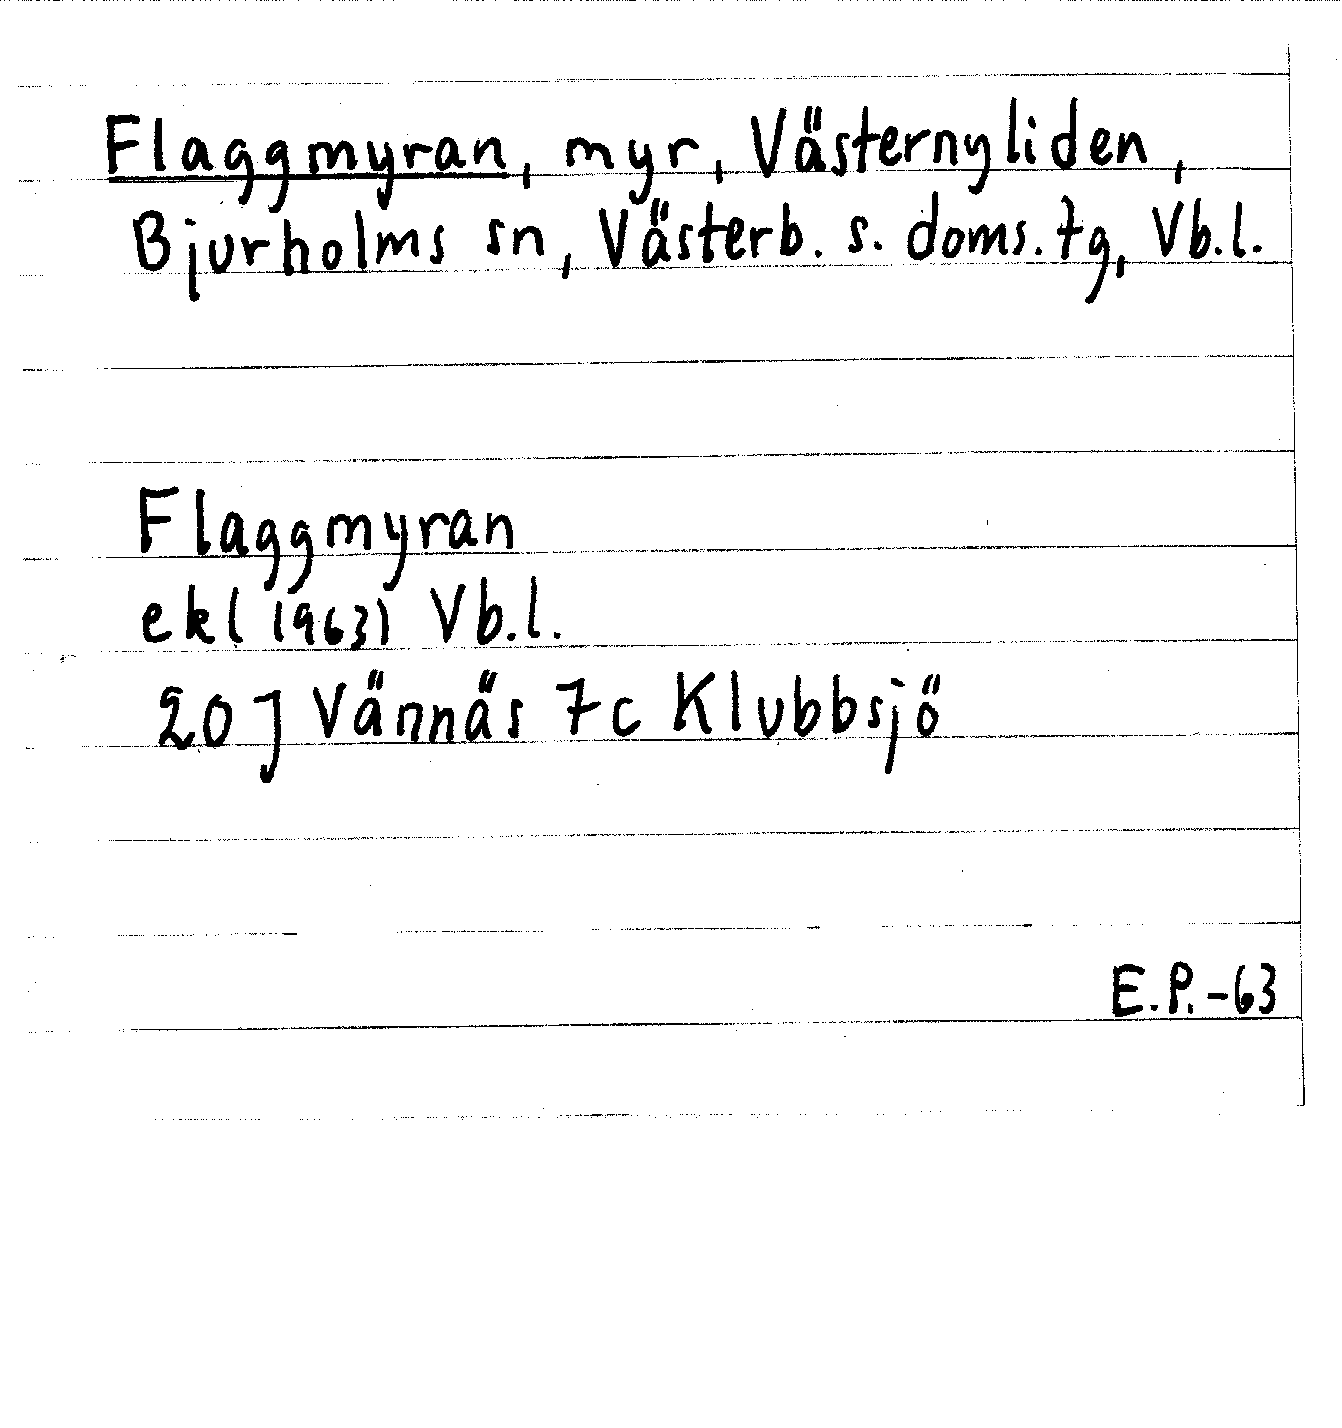 Flaggmyran, myr, Västernyliden,
Bjurholms sn, Västerb. s. doms. tg, Vb.l.
Flaggmyran
ekl (1963) Vb.l.
20 J Vännäs 7c Klubbsjö
E.P.-63